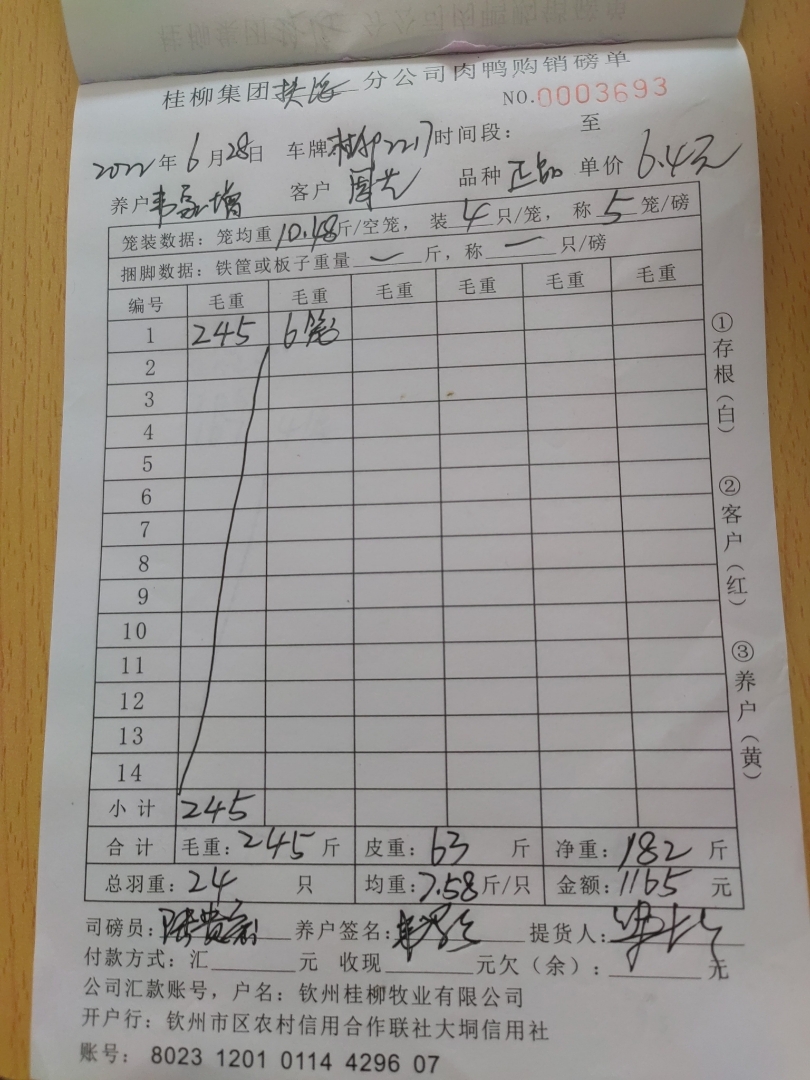 桂柳集团 分公司肉鸭购销磅单
NO.0003693
2022年6月28日 车牌桂柳2217时间段： 至
养户 客户 周 品种 正品 单价 6.4元
笼装数据：笼均重10.48斤/空笼，装4只/笼，称5笼/磅
捆脚数据：铁筐或板子重量一斤，称一只/磅
编号 毛重 毛重 毛重 毛重 毛重 毛重
1 245 6笼
2
3
4
5
6
7
8
9
10
11
12
13
14
小计 245
合计 毛重：245斤 皮重：63斤 净重：182斤
总羽重：24只 均重：7.58斤/只 金额：1165元
司磅员： 养户签名： 提货人：
付款方式：汇 元 收现 元欠（余）： 元
公司汇款账号，户名：钦州桂柳牧业有限公司
开户行：钦州市区农村信用合作联社大垌信用社
账号：8023 1201 0114 4296 07
①存根（白）
②客户（红）
③养户（黄）